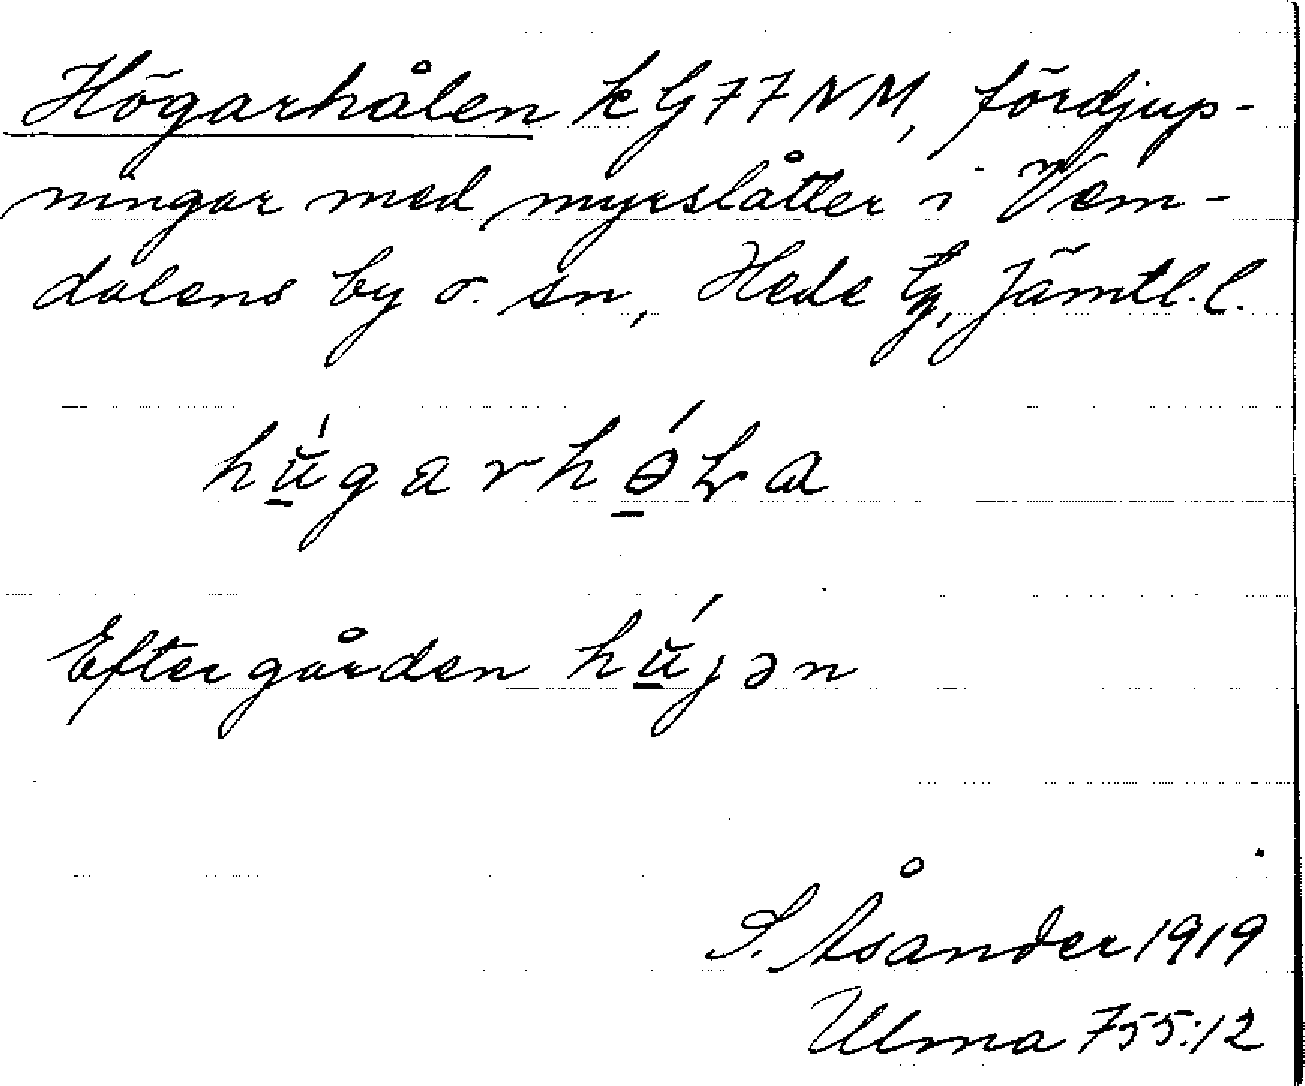 Högarhålen k G 77 NM, fördjup-
ningar med myrslåtter i Vem-
dalens by o. sn, Hede tg, Jämtl. l.
hǘgarhǿɽa
Efter gården hǘjən
S. Åsander 1919
Ulma 755:12